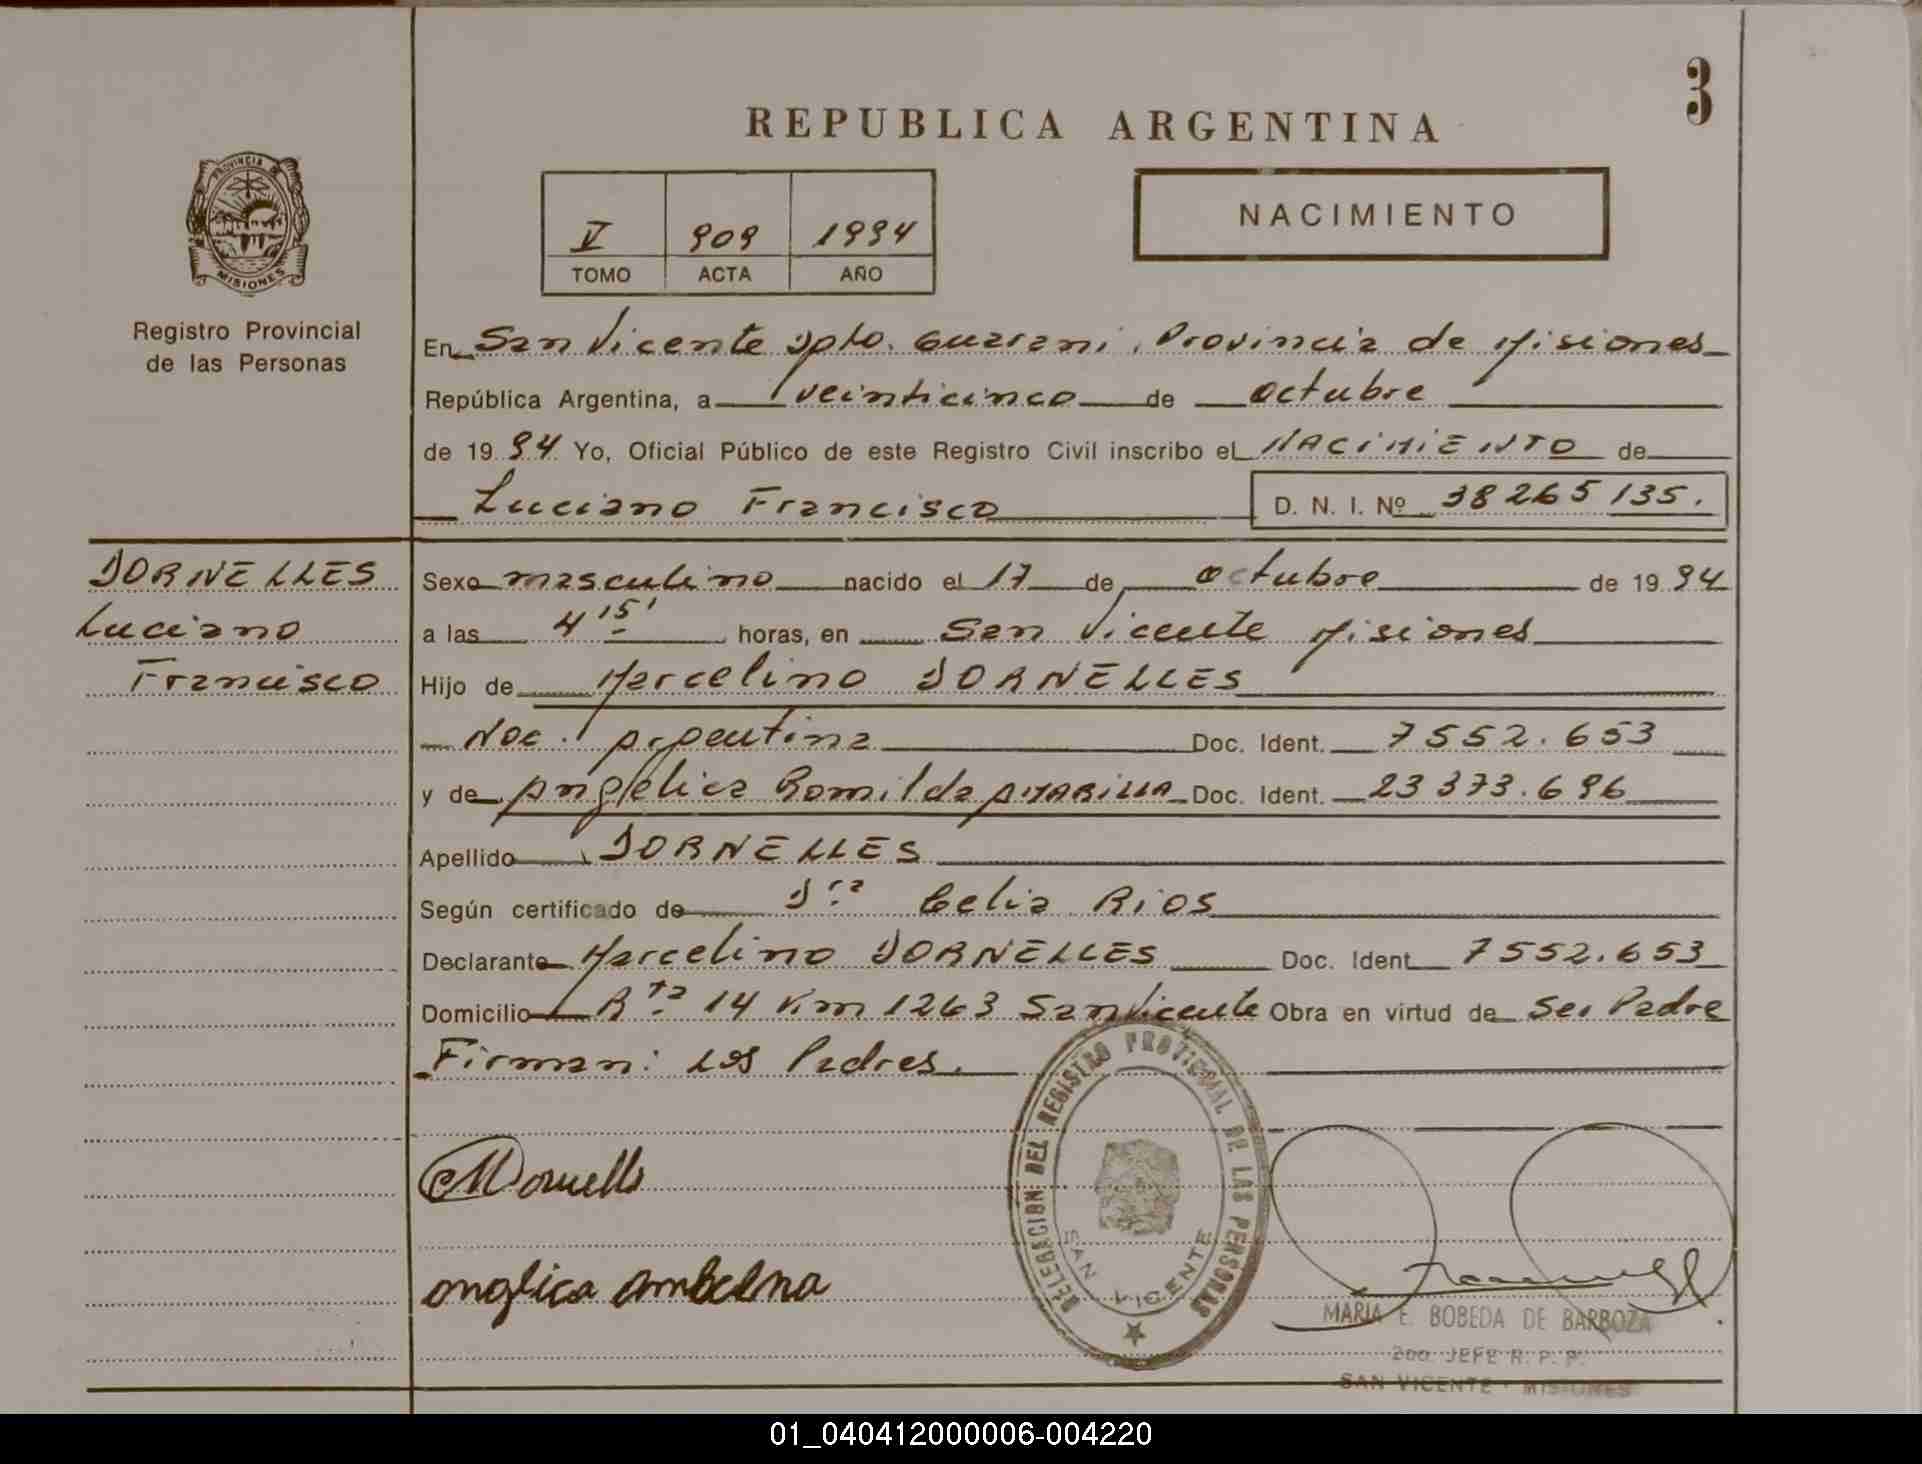 3
REPUBLICA ARGENTINA
PROVINCIA DE
MISIONES
Registro Provincial
de las Personas
V 909 1994
TOMO ACTA AÑO
NACIMIENTO
En San Vicente Dpto. Guarani, Provincia de Misiones
República Argentina, a veinticinco de octubre
de 1994 Yo, Oficial Público de este Registro Civil inscribo el NACIMIENTO de
Luciano Francisco D. N. I. Nº 38265135.
DORNELLES
Luciano
Francisco
Sexo masculino nacido el 17 de octubre de 1994
a las 4 15' horas, en San Vicente Misiones
Hijo de Marcelino DORNELLES
Nac. Argentina Doc. Ident. 7552.653
y de Angelica Romilda Doc. Ident. 23373.696
Apellido DORNELLES
Según certificado de Dra Celia Rios
Declarante Marcelino DORNELLES Doc. Ident. 7552.653
Domicilio Rta 14 Km 1263 San Vicente Obra en virtud de Ser Padre
Firman: Los Padres.
DELEGACION DEL REGISTRO PROVINCIAL DE LAS PERSONAS
SAN VICENTE
MARIA E. BOBEDA DE BARBOZA
2do. JEFE R. P. P.
SAN VICENTE - MISIONES
01_040412000006-004220